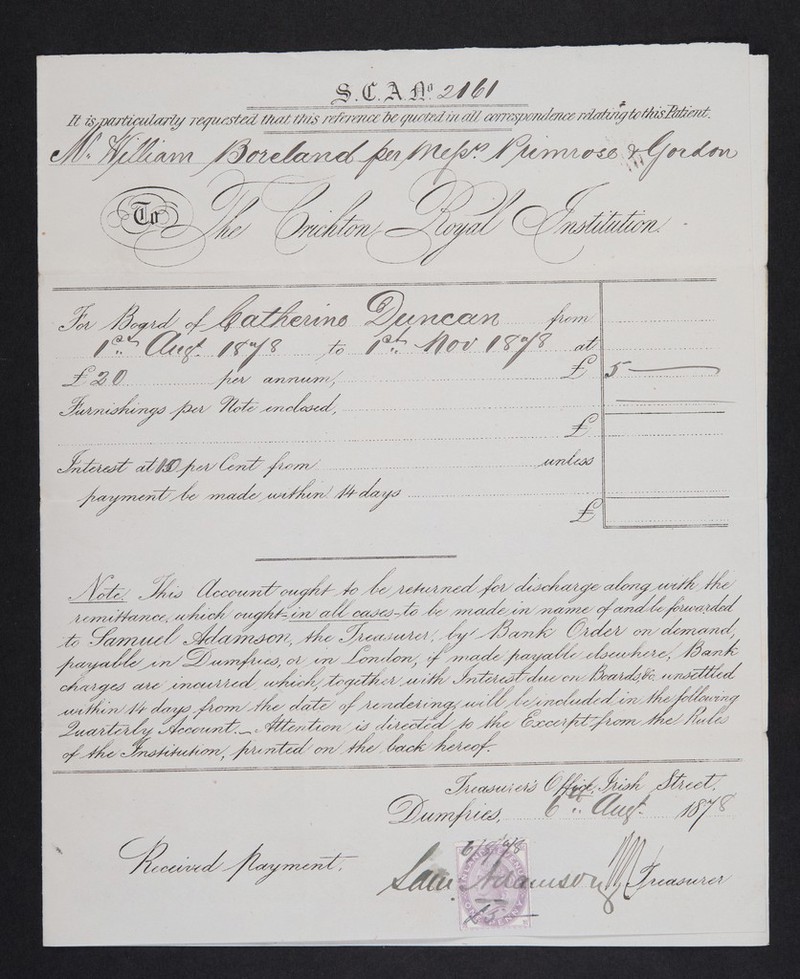 S. C. A No 2161
It is particularly requested that this reference be quoted in all correspondence relating to this Patient.
Mr. William Boreland per Messrs. Primrose & Gordon
To The Crichton Royal Institution
For Board of Catherine Duncan from
1st Augt. 1878 to 1st Nov 1878 at
£20 per annum, £ 5
Furnishings per Note enclosed,
£
Interest at per Cent from unless
payment be made within 14 days
£
Note. This Account ought to be returned for discharge along with the
remittance, which ought - in all cases - to be made in name of and be forwarded
to Samuel Adamson, the Treasurer, by Bank Order on demand,
payable in Dumfries, or in London; if made payable elsewhere, Bank
charges are incurred which, together with Interest due on Boards &c. unsettled
within 14 days from the date of rendering, will be included in the following
Quarterly Account. Attention is directed to the Excerpt from the Rules
of the Institution, printed on the back hereof.
Treasurer's Office, Irish Street,
Dumfries, 6th Augt. 1878
Received payment,
Sam Adamson Treasurer
£5